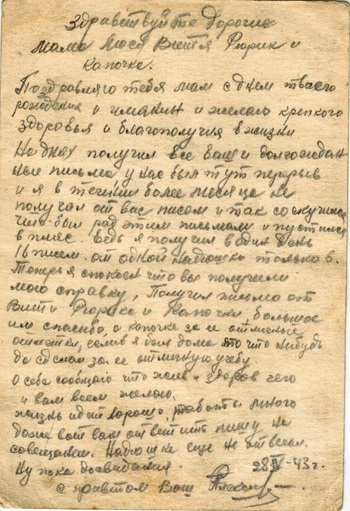 Здравствуйте Дорогие
мама Люся Витя Рюрик и
Капочке.
Поздравляю тебя мам с днем твоего
рождения и имянин и желаю крепкого
здоровья и благополучия в жизни
На днях получил все ваши долгождан
ные письма у нас был тут перерыв
и я в течении более месяца не
получал от вас писем и так соскучился
что был рад этим письмам и пустился
в пляс. ведь я получил в один день
16 писем. от одной Надюшки только 6.
Теперь спокоен что вы получили
мою справку, Получил письмо от
Вити Рюрика и Капочки, большое
им спасибо, а капочке за ее отличные
отметки, если б я был дома то что нибудь
да сделал за ее отличную учебу
О себе сообщаю что жив и здоров чего
и вам всем желаю.
жизнь идет хорошо, работы много
даже вот вам ответить пишу на
совещании. Надюшке еще не ответил.
Ну пока досвидания
28 43 г.
с приветом Ваш